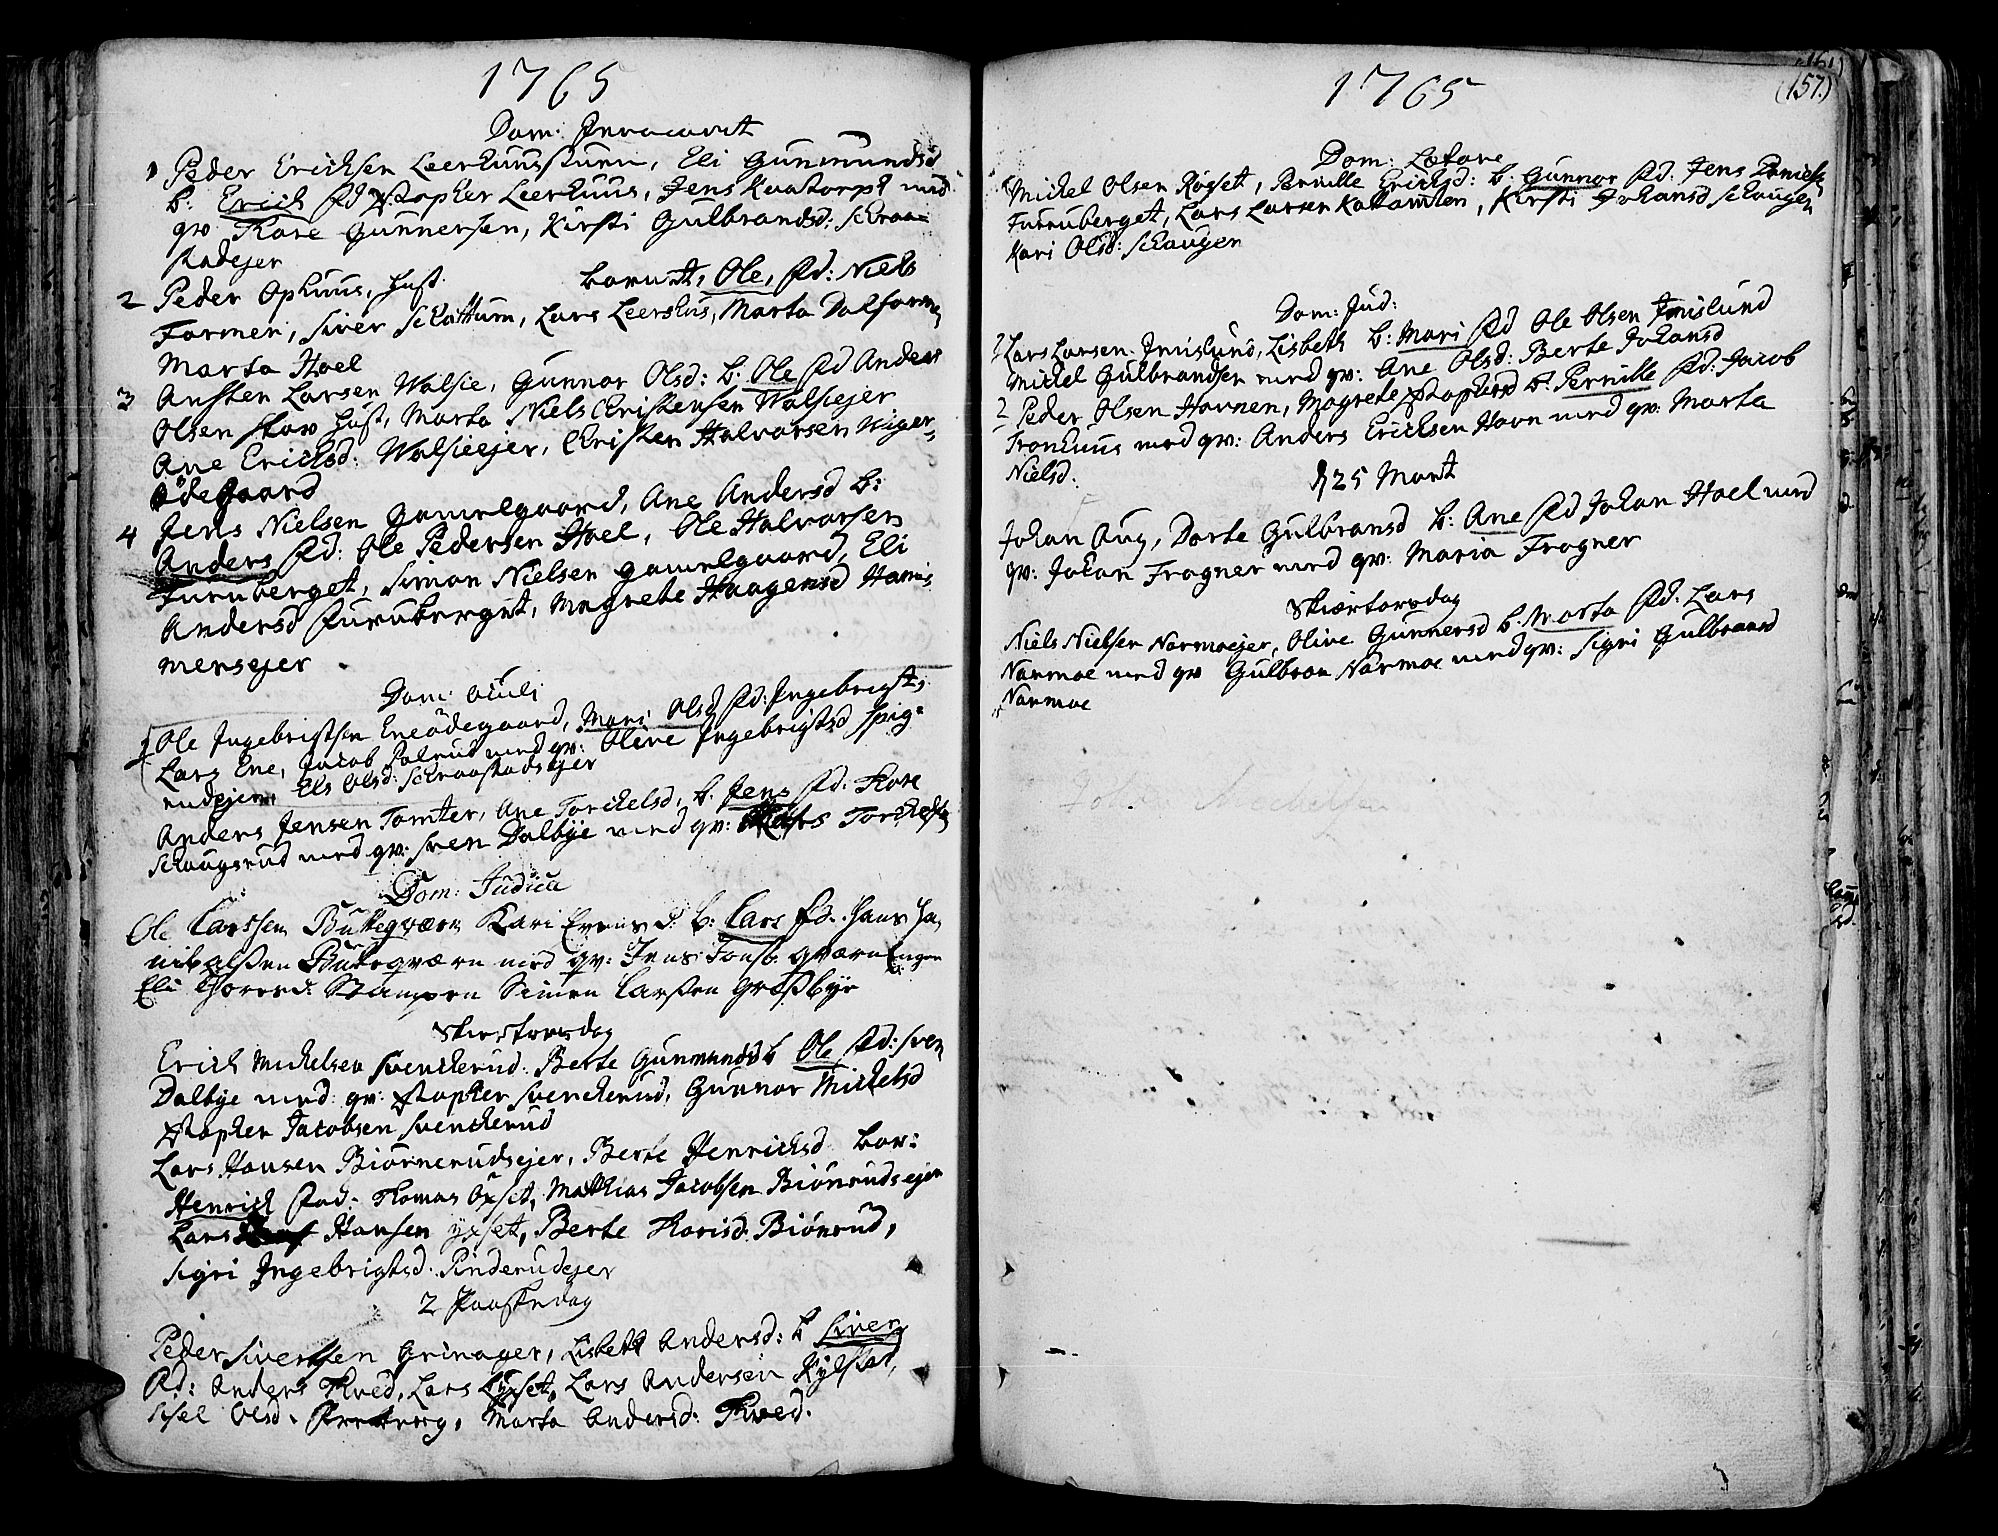 1765
Dom: Invocavit
1 Peder Ericksen Leerhuus, Eli Gunmundsd
b: Erich Fd Xstopher Leerhuus, Jens Kaatorp med
qv Thore Gunnersen, Kirsti Gulbrandsd: Schraa-
stadejer
2 Peder Ophuus, hust. barnet, Ole, Fd: Niels
Farmen, Siver Schattum, Lars Leershus, Marta Dalfarmen
Marta Hoel
3 Ansten Larsen Walsie, Gunnor Olsd: b: Ole Fd Anders
Olsen hust, Marta Niels Christensen Walsiejer
Ane Ericksd: Walsieejer, Christen Halvorsen Niger-
ødegaard
4 Jens Nielsen Gammelgaard, Ane Andersd b:
Anders Fd: Ole Pedersen Hoel, Ole Halvorsen
Furuberget, Simon Nielsen Gammelgaard, Eli
Andersd Furuberget, Magrete Haagensd Ham-
mersejer
Dom: Oculi
Ole Ingebrigtsen Eneødegaard, Mari Olsd Fd: Ingebrigt,
Lars Ene, Jacob med qv: Oline Ingebrigtsd Spig-
rudejer, Els Olsd: Schraastadsejer
Anders Jensen Tomter, Ane Torchelsd, b. Jens Fd: Thore
Schougsrud med qv: Sven Dalbye med qv: Torchels
Dom: Judica
Ole Larssen Büttegværn Kari Evensd: b: Lars Fd. Hans Ha
nibalsen Büttegværn med qv: Jens Gværn Engen
Eli Thoresd: Stampen Simen Larsen Grøsbye
Skiertorsdag
Erich Michelsen Svencherud. Berte Gunmundsd b Ole Fd: Sven
Dalbye med: qv: Xstopher Svencherud, Gunnor Michelsd
Xstopher Jacobsen Svencherud
Lars Hansen Biørnerudsejer, Berte Henrichsd bar:
Henrich Fad: Thomas Øxset, Mathias Jacobsen Biønrudsejer
Lars Hansen yxset, Berte Thorisd. Biønrud,
Sigri Ingebrigtsd. Pinderudejer
2 Paaskedag
Peder Sivertsen Grinager, Lisbett Andersd: b Siver
Fd: Anders Thved, Lars Lyxset, Lars Andersen Kylstad,
Sisel Olsd. Marta Andersd: Thved.
1765
(157.)
Dom: Lætare
Michel Olsen Røset, Pernille Ericksd: b: Gunnor Fd: Jens Daniels
Furruberget, Lars Larsen Kattamten, Kirsti Johansd Schaugen
Kari Olsd: Schaugen
Dom: Jud:
1 Lars Larsen Imislund, Lisbeth b: Mari Fd Ole Olsen Imislund
Michel Gulbrandsen med qv: Ane Olsd: Berte Johansd
2 Peder Olsen Hovnen, Magrete Xstophersd b: Pernille Fd: Jacob
Tronhuus med qv: Anders Ericksen Hovn med qv: Marta
Nielsd.
d 25 Mart
Johan Aug, Dorte Gulbransd b: Ane Fd Johan Hoel med
qv: Johan Frogner med qv: Maria Frogner
Skiærtorsdag
Niels Nielsen Narmoejer, Oline Gunnersd b: Marta Fd: Lars
Narmoe med qv Gulbran Narmoe med qv: Sigri Gulbransd
Narmoe